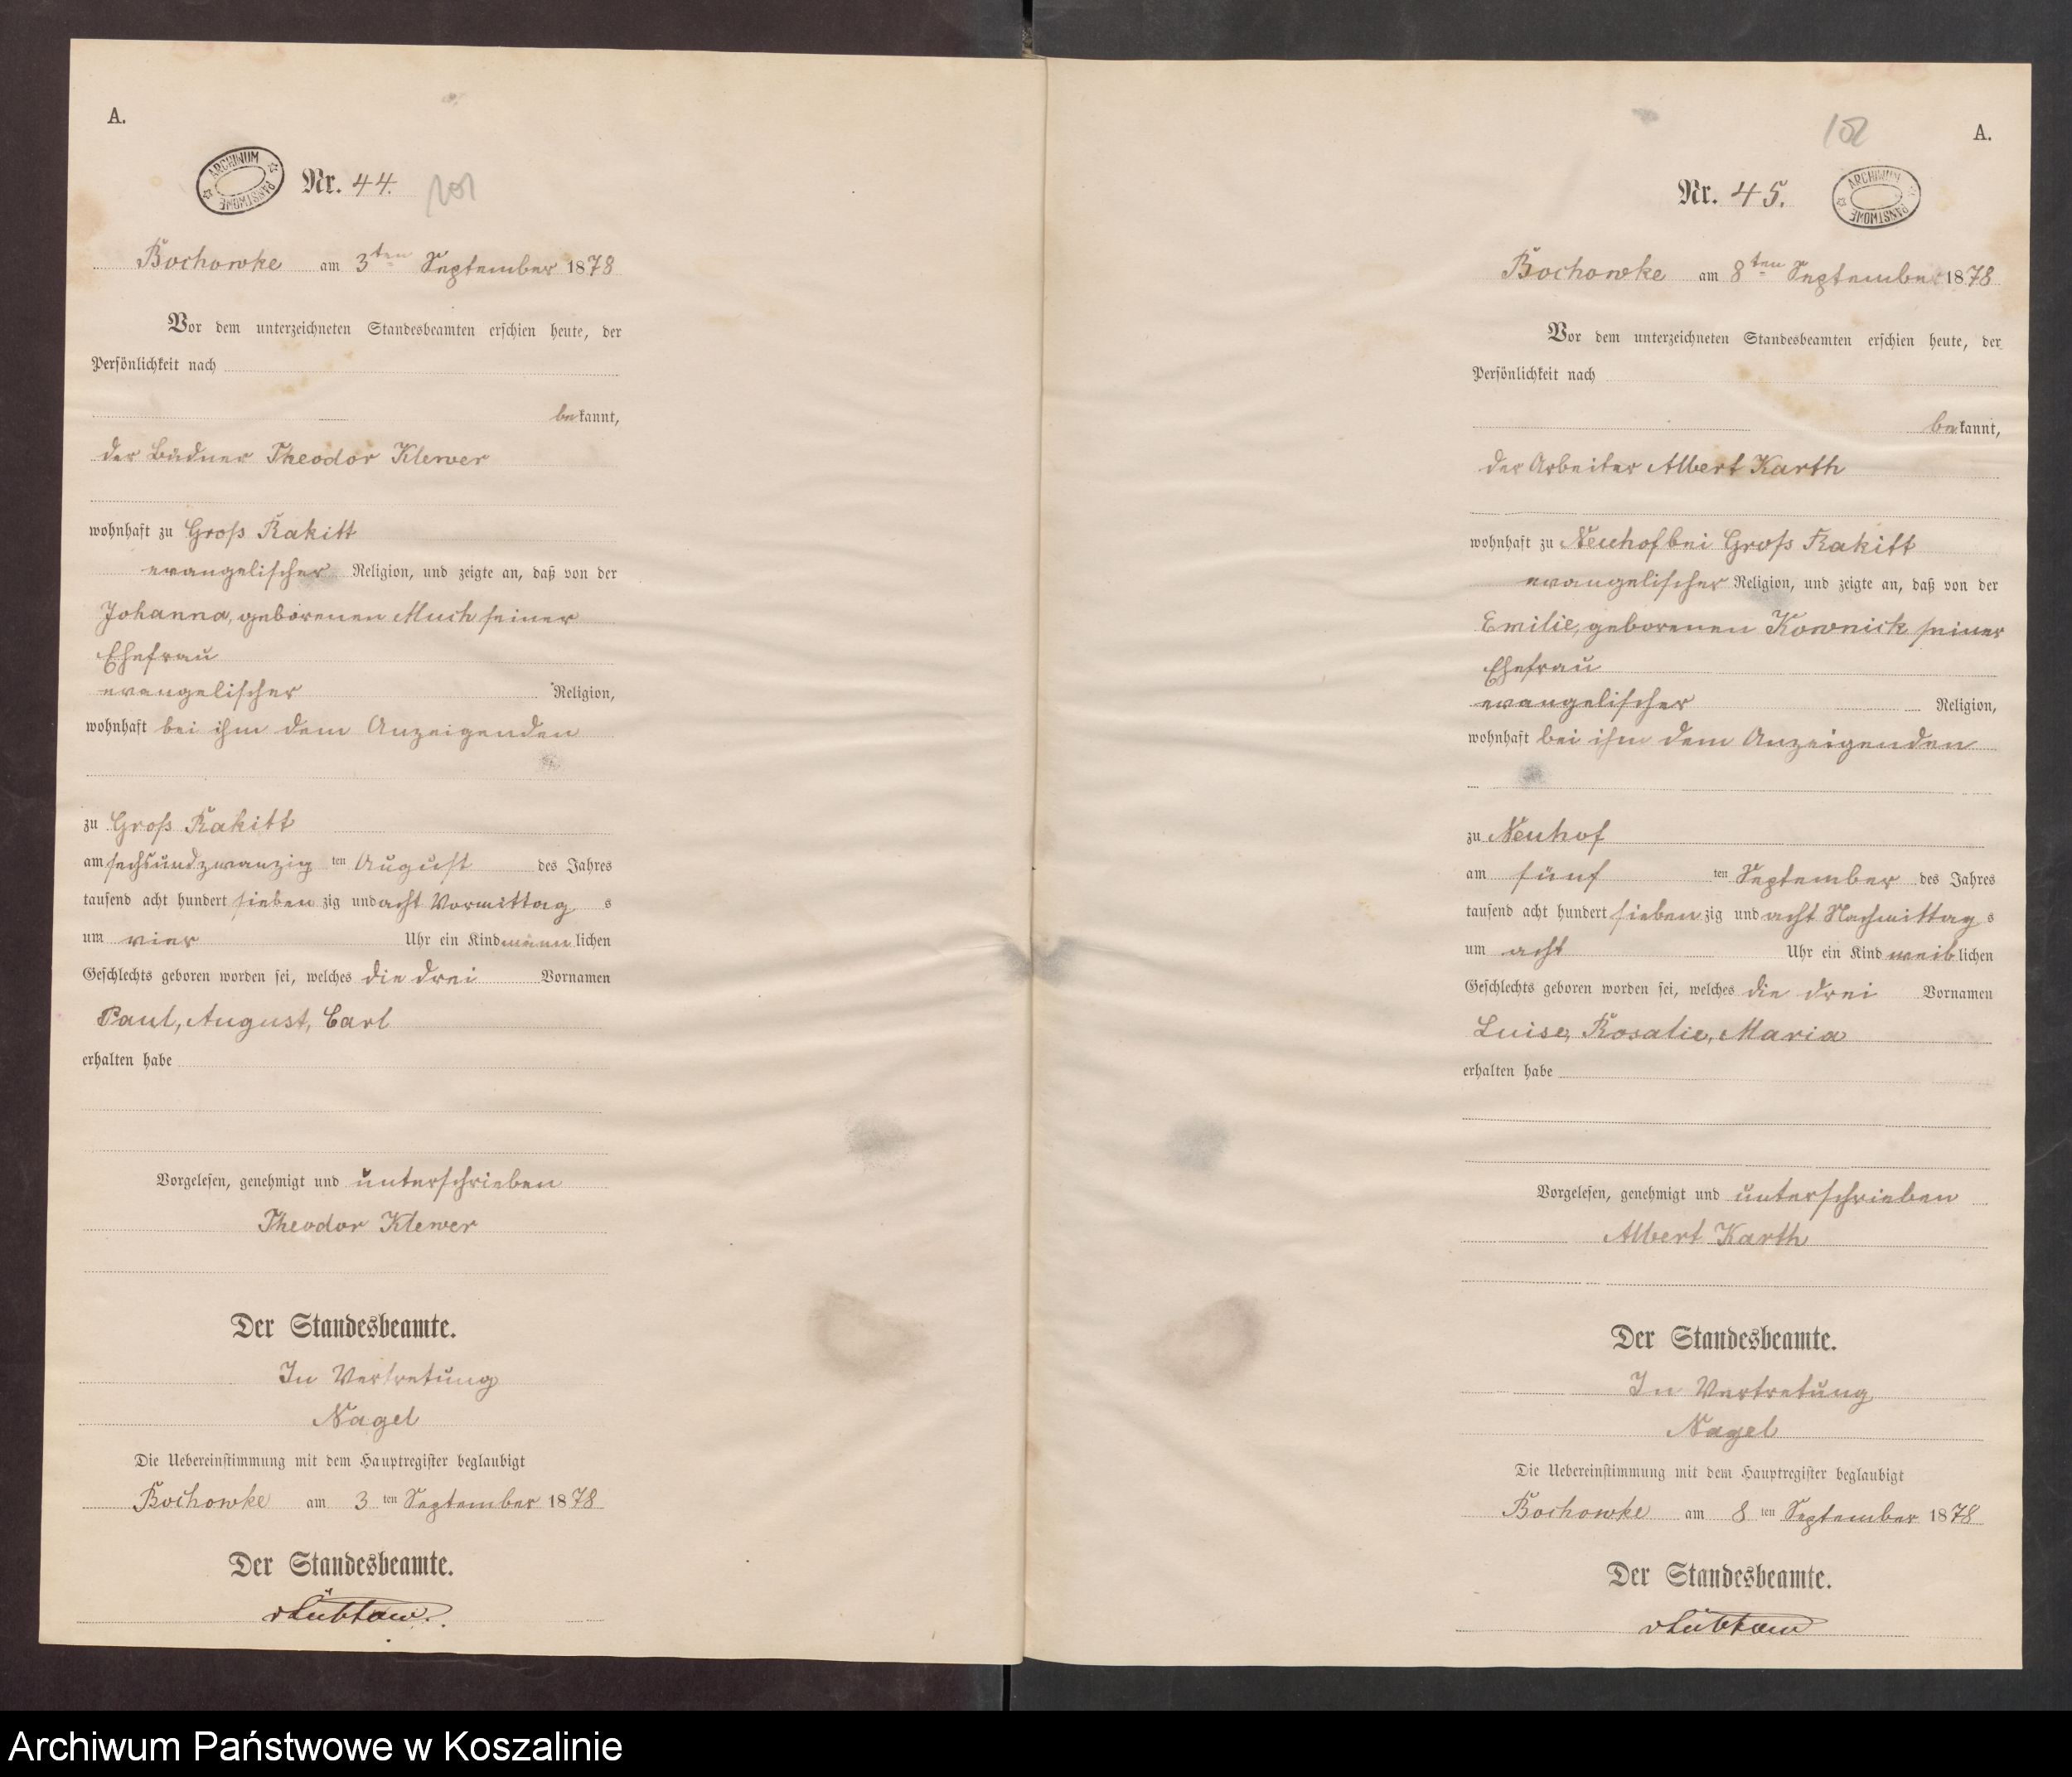 A.
ARCHIWUM PAŃSTWOWE
Nr. 44.
101
Bochowke am 3ten September 1878
Vor dem unterzeichneten Standesbeamten erschien heute, der
Persönlichkeit nach
bekannt,
der Büdner Theodor Klewer
wohnhaft zu Groß Rakitt
evangelischer Religion, und zeigte an, daß von der
Johanna, geborenen Much seiner
Ehefrau
evangelischer Religion,
wohnhaft bei ihm dem Anzeigenden
zu Groß Rakitt
am sechsundzwanzig ten August des Jahres
tausend acht hundert sieben zig und acht Vormittag s
um vier Uhr ein Kind männ lichen
Geschlechts geboren worden sei, welches die drei Vornamen
Paul, August, Carl
erhalten habe
Vorgelesen, genehmigt und unterschrieben
Theodor Klewer
Der Standesbeamte.
In Vertretung
Nagel
Die Uebereinstimmung mit dem Hauptregister beglaubigt
Bochowke am 3 ten September 1878
Der Standesbeamte.
vLübtow.
102
A.
Nr. 45.
ARCHIWUM PAŃSTWOWE
Bochowke am 8ten September 1878
Vor dem unterzeichneten Standesbeamten erschien heute, der
Persönlichkeit nach
bekannt,
der Arbeiter Albert Karth
wohnhaft zu Neuhof bei Groß Rakitt
evangelischer Religion, und zeigte an, daß von der
Emilie, geborenen Kownick seiner
Ehefrau
evangelischer Religion,
wohnhaft bei ihm dem Anzeigenden
zu Neuhof
am fünf ten September des Jahres
tausend acht hundert sieben zig und acht Nachmittag s
um acht Uhr ein Kind weib lichen
Geschlechts geboren worden sei, welches die drei Vornamen
Luise, Rosalie, Maria
erhalten habe
Vorgelesen, genehmigt und unterschrieben
Albert Karth
Der Standesbeamte.
In Vertretung
Nagel
Die Uebereinstimmung mit dem Hauptregister beglaubigt
Bochowke am 8 ten September 1878
Der Standesbeamte.
vLübtow
Archiwum Państwowe w Koszalinie